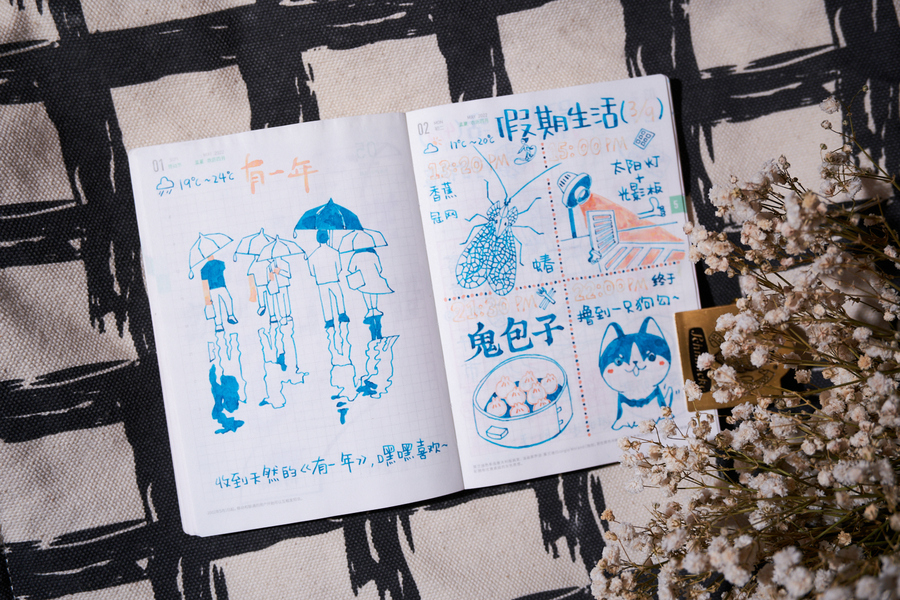 01
19℃~24℃
有一年
收到天然的《有一年》,嘿嘿喜欢~
02
假期生活(3/4)
11℃~20℃
香蕉
冠网
蝽
太阳灯
+
光影板
鬼包子
终于
撸到一只狗勾~